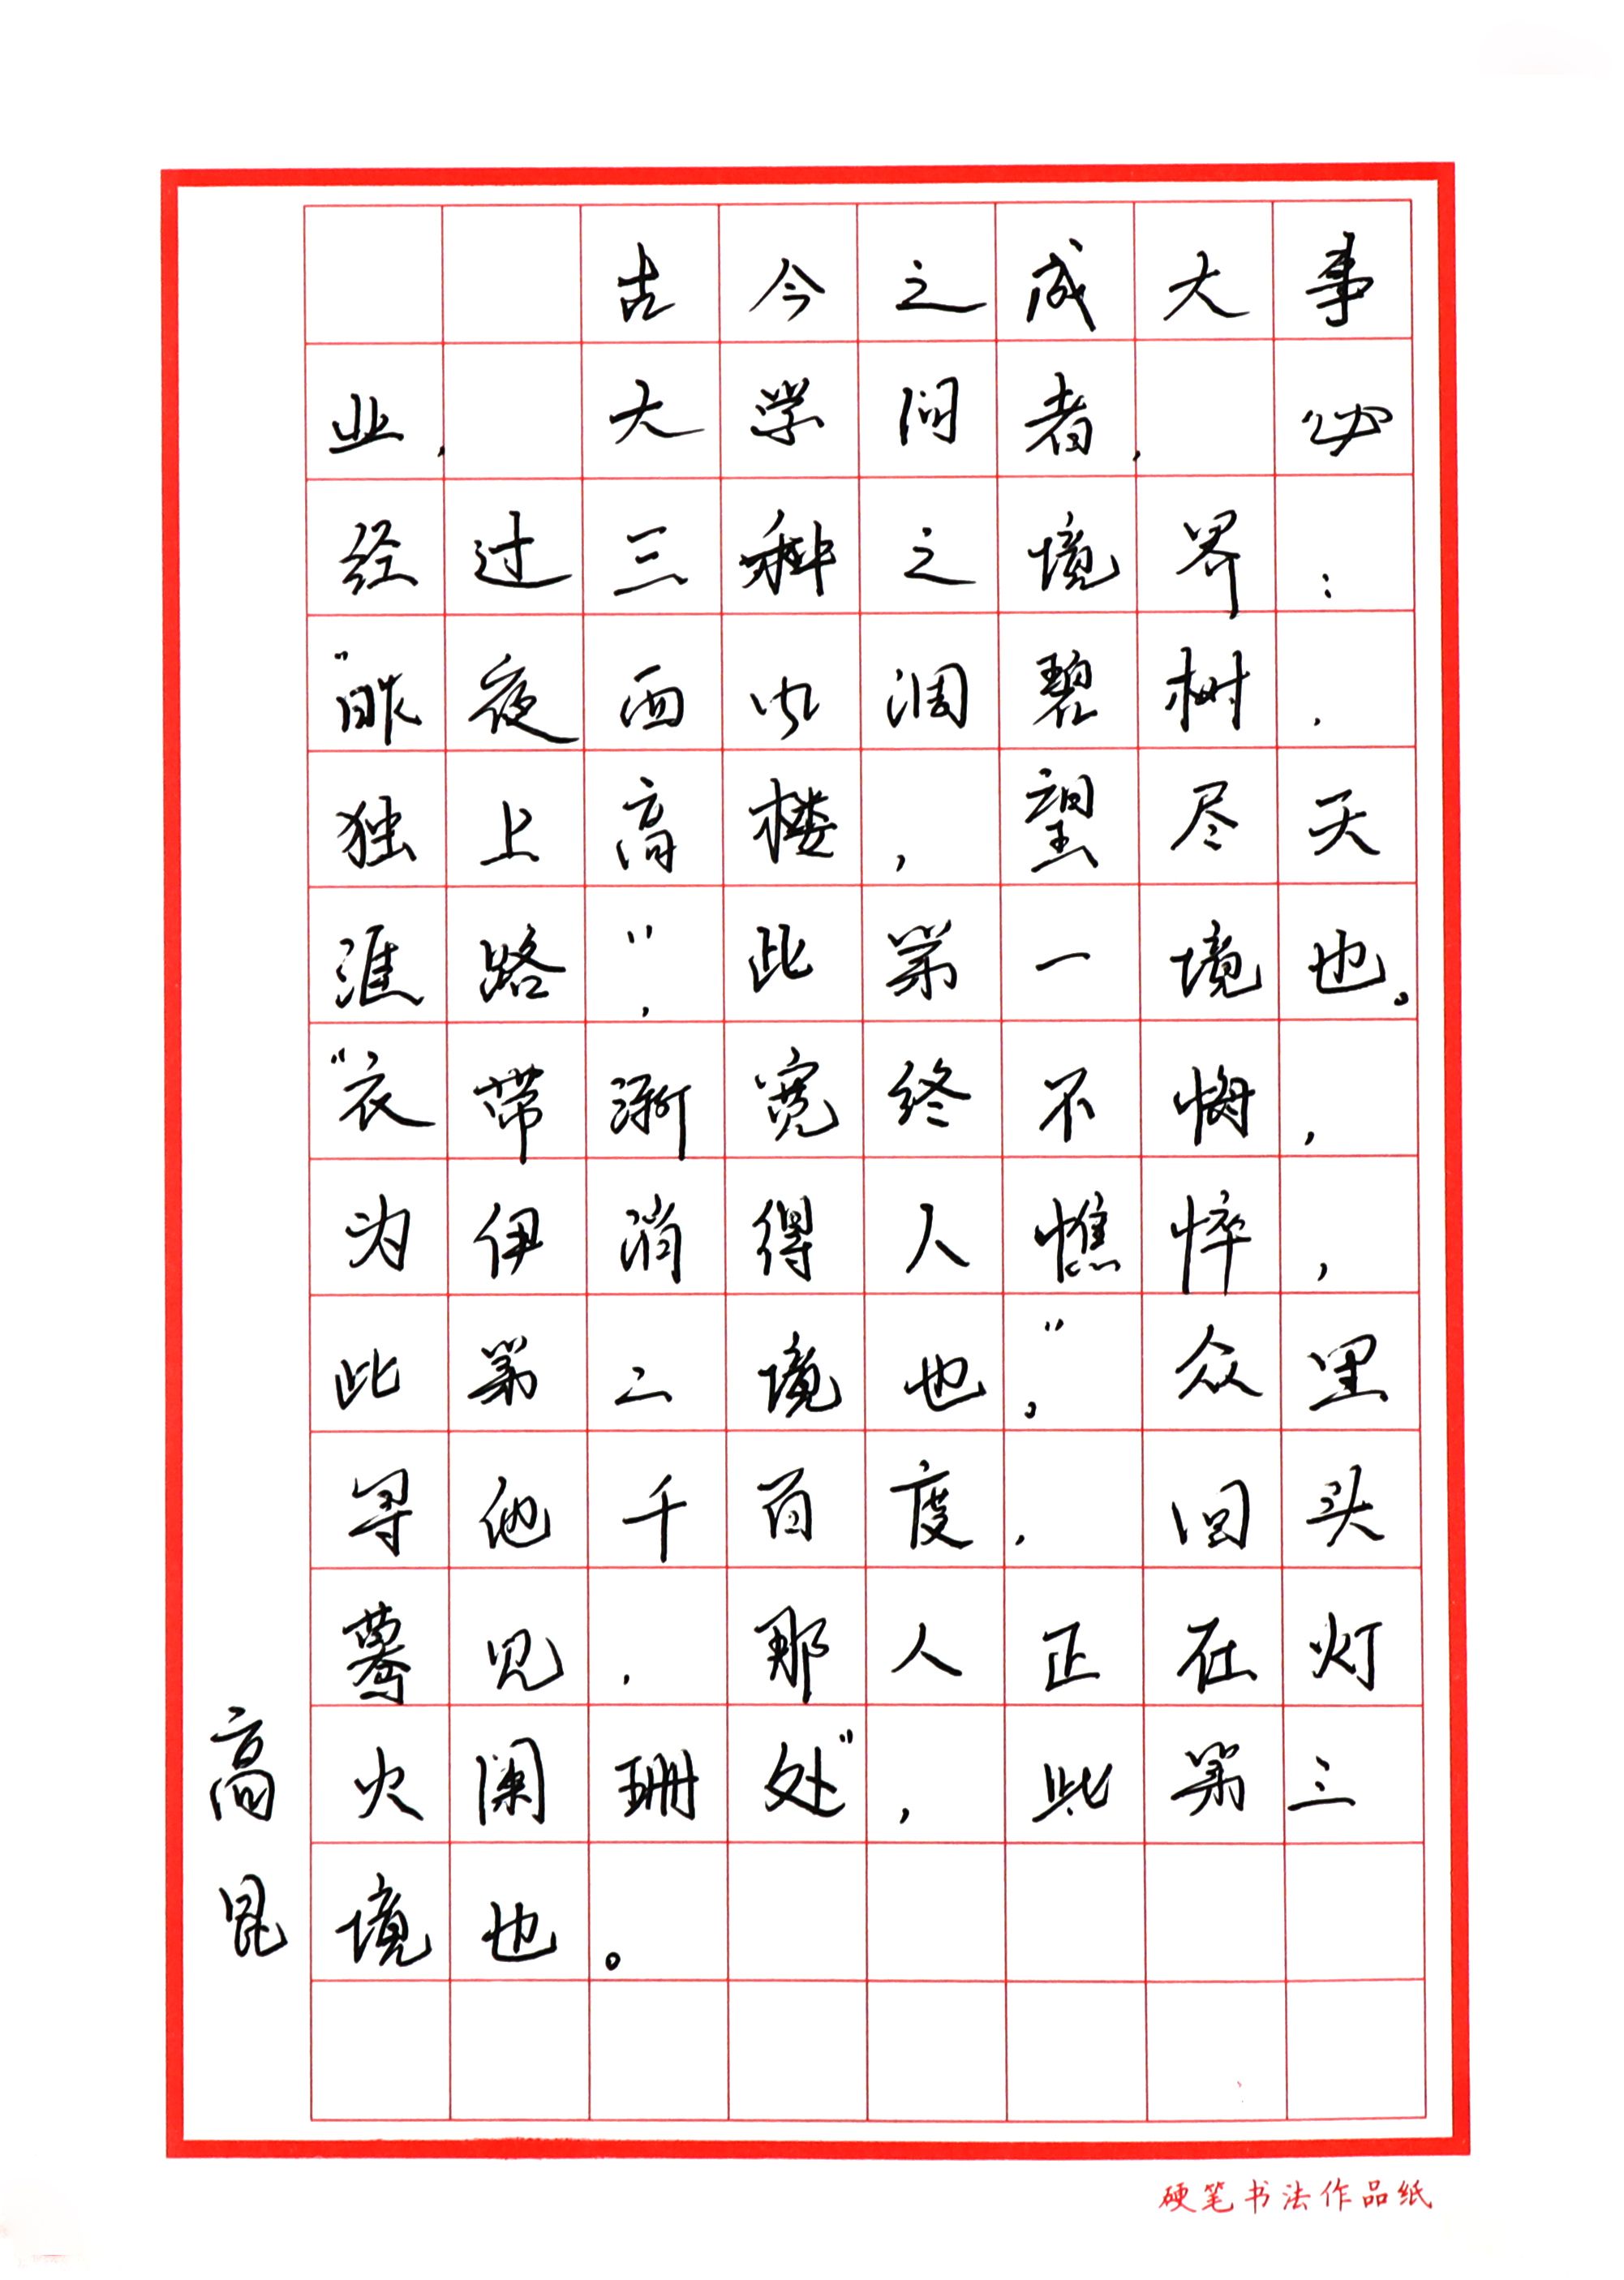 古今之成大事
业，大学问者，必
经过三种之境界：
“昨夜西风凋碧树，
独上高楼，望尽天
涯路”，此第一境也。
“衣带渐宽终不悔，
为伊消得人憔悴，
此第二境也。”众里
寻他千百度，回头
蓦见，那人正在灯
火阑珊处”，此第三
境也。
高昆
硬笔书法作品纸